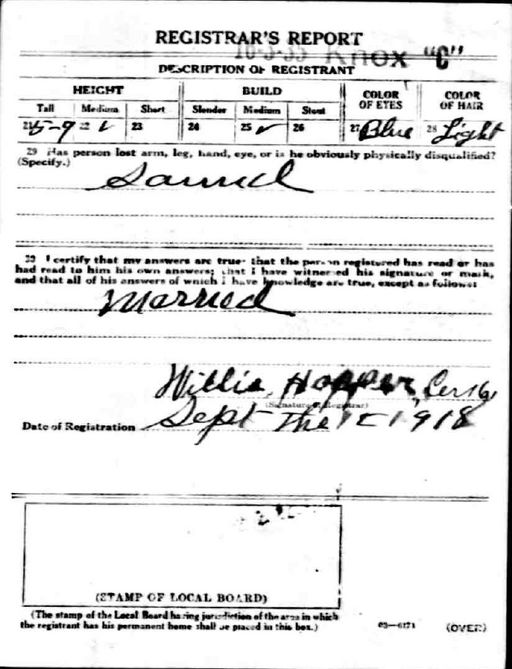 REGISTRAR'S REPORT
Knox "C"
DESCRIPTION OF REGISTRANT
HEIGHT BUILD COLOR OF EYES COLOR OF HAIR
Tall Medium Short Slender Medium Stout
21 5-9 22 ✓ 23 24 25 ✓ 26 27 Blue 28 Light
29 Has person lost arm, leg, hand, eye, or is he obviously physically disqualified?
(Specify.)
30 I certify that my answers are true; that the person registered has read or has
had read to him his own answers; that I have witnessed his signature or mark,
and that all of his answers of which I have knowledge are true, except as follows:
Married
Willie Hopper
(Signature of Registrar)
Date of Registration Sept the 12 1918
(STAMP OF LOCAL BOARD)
(The stamp of the Local Board having jurisdiction of the area in which
the registrant has his permanent home shall be placed in this box.)
03—6171 (OVER)